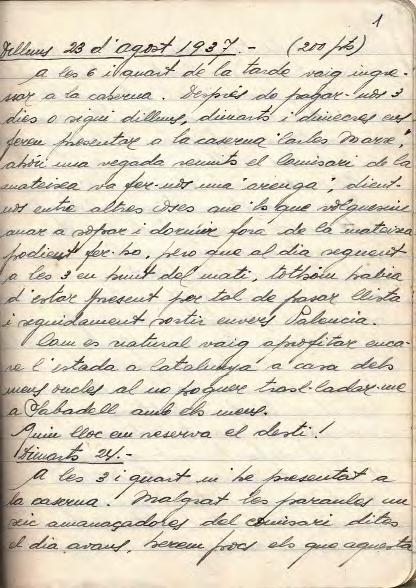 1
Dilluns 23 d'agost 1937.- (200 pts)
A les 6 i quart de la tarde vaig ingre-
sar a la caserna. Després de pagar-nos 3
dies o sigui dilluns, dimarts i dimecres ens
feren presentar a la caserna "Carles Marx",
ahón una vegada reunits el Comisari de la
mateixa va fer-nos una "arenga", dient-
nos entre altres coses que lo que volguessin
anar a sopar i dormir fora de la mateixa
podien fer-ho, pero que al dia seguent
a les 3 en punt del mati, tothóm habia
d'estar present per tal de pasar llista
i seguidament sortir envers Palencia.
Com es natural vaig aprofitar enca-
re l'estada a Catalunya a casa dels
meus oncles al no poguer trasl-ladar-me
a Sabadell amb els meus.
Quin lloc em reserva el destí!
Dimarts 24.-
A les 3 i quart m'he presentat a
la caserna. Malgrat les paraules un
xic amanaçadores del comisari dites
el dia avans, herem pocs els que aquesta